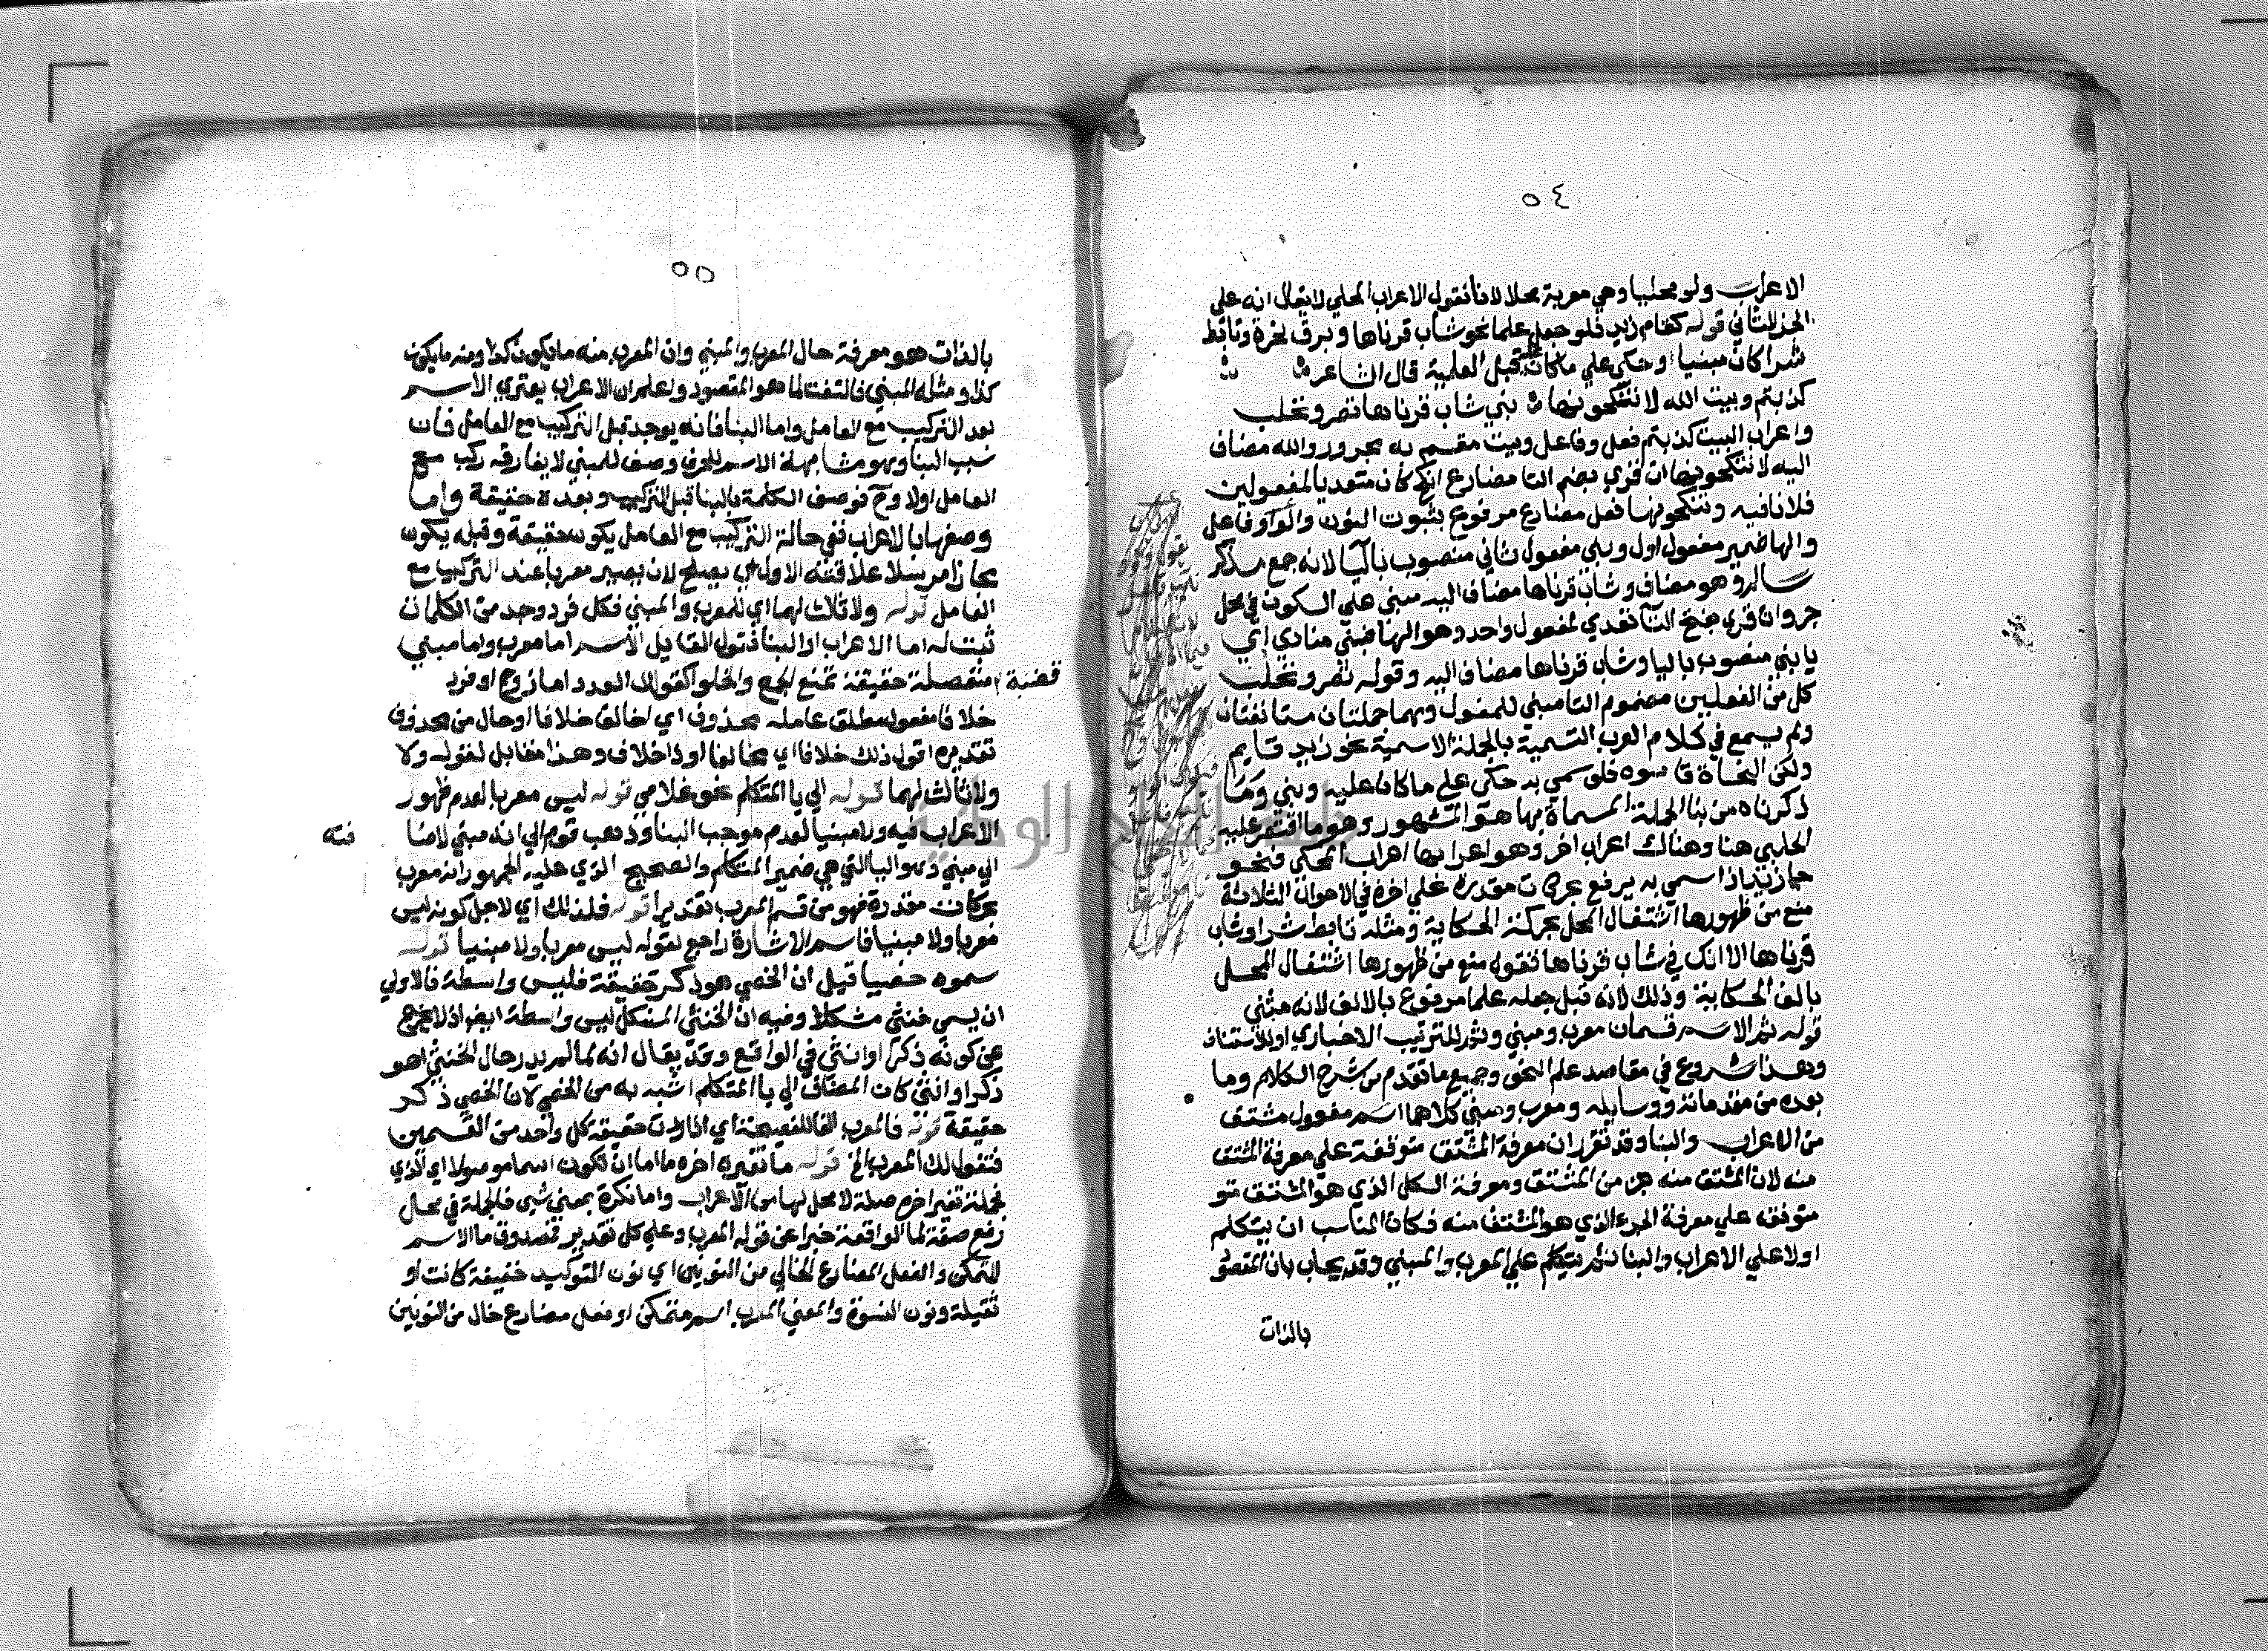 ٥٤
الاعراب ولو محليا وهي معربة محلا لانا نقول الاعراب المحلي لا يقال انه علي
الجزء الثاني قوله كقام زيد فلو جعل علما نحو شاب قرناها وبرق نحره وتابط
شرا كان مبنيا وحكي علي ما كان عليه قبل العلمية قال الشاعر
كذبتم وبيت الله لا تنكحونها بني شاب قرناها تصر وتحلب
واعراب البيت كذبتم فعل وفاعل وبيت مقسم به مجرور والله مضاف
اليه لا تنكحونها ان قري بضم التا مضارع انكح كان متعديا لمفعولين
فلا نافيه وتنكحونها فعل مضارع مرفوع بثبوت النون والواو فاعل
والها ضمير مفعول اول وبني مفعول ثاني منصوب باليا لانه جمع مذكر
سالم وهو مضاف وشاب قرناها مضاف اليه مبني علي السكون في محل
جر وان قري بفتح التا تعدي لمفعول واحد وهو الها فبني منادي اي
يا بني منصوب باليا وشاب قرناها مضاف اليه وقوله تصر وتحلب
كل من الفعلين مضموم التا مبني للمفعول وهما جملتان مستانفتان
ولم يسمع في كلام العرب التسمية بالجملة الاسمية نحو زيد قايم
ولكن النحاة قاسوه فلو سمي به حكي علي ما كان عليه وبني وما
ذكرناه من بنا الجملة المسماة بها هو المشهور وهو ما اقتصر عليه
الحلبي هنا وهناك اعراب اخر وهو اعرابها اعراب المحكي فنحو
جا زيد اذا سمي به يرفع بحركات مقدرة علي اخره في الاحوال الثلاثة
منع من ظهورها اشتغال المحل بحركة الحكاية ومثله تابط شرا وشاب
قرناها الا انك في شاب قرناها تقول منع من ظهورها اشتغال المحل
بالف الحكاية وذلك لانه قبل جعله علما مرفوع بالالف لانه مثني
قوله ثم الاسم قسمان معرب ومبني وثم للترتيب الاخباري او للاستئناف
وهذا شروع في مقاصد علم النحو وجميع ما تقدم من شرح الكلام وما
بعده من مقدماته ووسايله ومعرب ومبني كلاهما اسم مفعول مشتق
من الاعراب والبنا وقد تقرر ان معرفة المشتق متوقفة علي معرفة المشتق
منه لان المشتق منه جزء من المشتق ومعرفة الكل الذي هو المشتق متو
متوقفه علي معرفة الجزء الذي هو المشتق منه فكان المناسب ان يتكلم
اولا علي الاعراب والبنا ثم يتكلم علي المعرب والمبني وقد يجاب بان المقصو
بالذات
٥٥
بالذات هو معرفة حال المعرب والمبني وان المعرب منه ما يكون كذا ومنه ما يكون
كذا ومثله المبني فالتفت لما هو المقصود واعلم ان الاعراب يعتري الاسم
بعد التركيب مع العامل واما البنا فانه يوجد قبل التركيب مع العامل فان
سبب البنا وهو مشابهة الاسم للحرف وصف للمبني لا يفارقه ركب مع
العامل اولا وح فوصف الكلمة بالبنا قبل التركيب وبعده حقيقة واما
وصفها بالاعراب ففي حالة التركيب مع العامل يكون حقيقة وقبله يكون
مجازا مرسلا علاقته الاول اي يصلح لان يصير معربا عند التركيب مع
العامل قوله ولا ثالث لهما اي للمعرب والمبني فكل فرد وجد من الكلمات
ثبت له اما الاعراب او البنا فقول القايل الاسم اما معرب واما مبني
قضية منفصلة حقيقة تمنع الجمع والخلو كقولك العدد اما زوج او فرد
خلافا مفعول مطلق عامله محذوف اي اخالف خلافا او حال من محذوف
تقديره اقول ذلك خلافا اي مخالفا او ذا خلاف وهذا مقابل لقوله ولا
ولا ثالث لهما قوله الي يا المتكلم نحو غلامي قوله ليس معربا لعدم ظهور
الاعراب فيه ولا مبنيا لعدم موجب البنا وذهب قوم الي انه مبني لاضا
فته
الي مبني وهو اليا التي هي ضمير المتكلم والصحيح الذي عليه الجمهور انه معرب
بحركات مقدرة فهو من قسم المعرب تقديرا قوله فلذلك اي لاجل كونه ليس
معربا ولا مبنيا فاسم الاشارة راجع لقوله ليس معربا ولا مبنيا قوله
سموه خصيا قيل ان الخصي هو ذكر حقيقة فليس واسطة فالاولي
ان يسمي خنثي مشكلا وفيه ان الخنثي المشكل ليس واسطة ايضا اذ لا يخرج
عن كونه ذكرا او انثي في الواقع وقد يقال انه لما لم يدر حال الخنثي اهو
ذكر او انثي كان المضاف الي يا المتكلم اشبه به من الخصي لان الخصي ذكر
حقيقة قوله فالمعرب الفا للفصيحة اي اذا اردت حقيقة كل واحد من القسمين
فنقول لك المعرب الخ قوله ما تغير اخره ما اما ان تكون اسما موصولا اي الذي
فجملة تغير اخره صلة لا محل لها من الاعراب واما نكرة بمعني شي فالجملة في محل
رفع صفة لما الواقعة خبرا عن قوله المعرب وعلي كل تقدير تصدق ما الاسم
المتمكن والفعل المضارع الخالي من النونين اي نون التوكيد خفيفة كانت او
ثقيلة ونون النسوة والمعني المعرب اسم متمكن او فعل مضارع خال من النونين